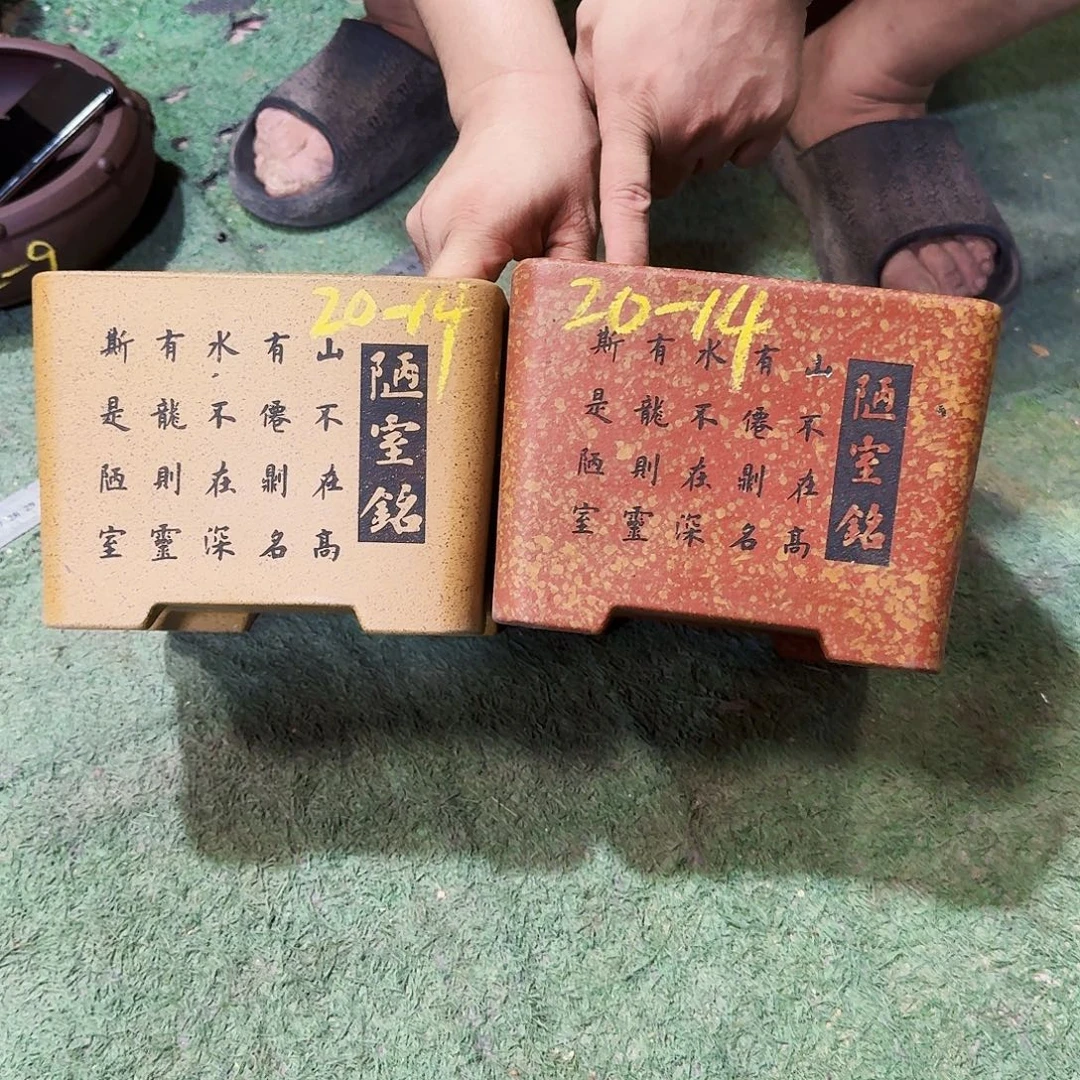 -9
20-14
陋室銘
山不在高
有僊𠟭名
水不在深
有龍則靈
斯是陋室
20-14
陋室銘
山不在高
有僊𠟭名
水不在深
有龍則靈
斯是陋室